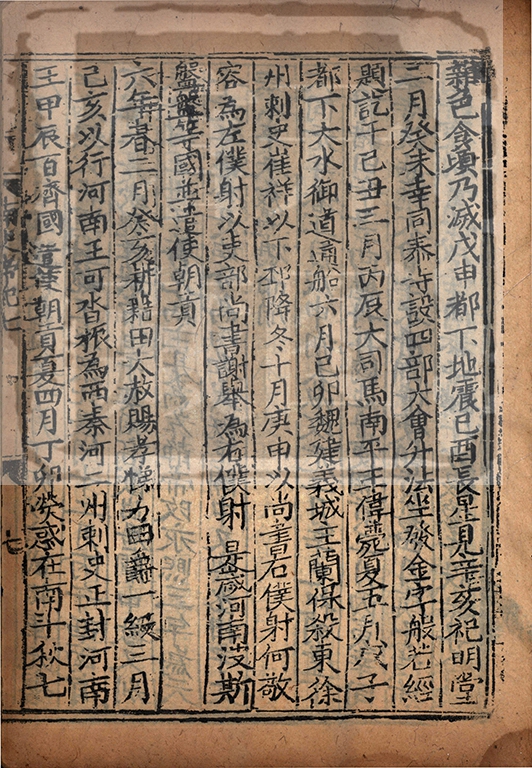 雜色食填乃滅戊申都下地震己酉長星見辛亥祀明堂
二月癸未幸同泰寺設四部大會升法坐發金字般若經
題訖于己丑三月丙辰大司馬南平王偉薨夏五月庚子
都下大水御道通船六月己卯魏建義城主蘭保殺東徐
州刺史崔祥以下邳降冬十月庚申以尚書右僕射何敬
容為左僕射以吏部尚書謝舉為右僕射是歲河南波斯
盤盤等國並遣使朝貢
六年春二月癸亥耕籍田大赦賜孝悌力田爵一級三月
己亥以行河南王可沓振為西秦河二州刺史正封河南
王甲辰百濟國遣使朝貢夏四月丁卯熒惑在南斗秋七
七